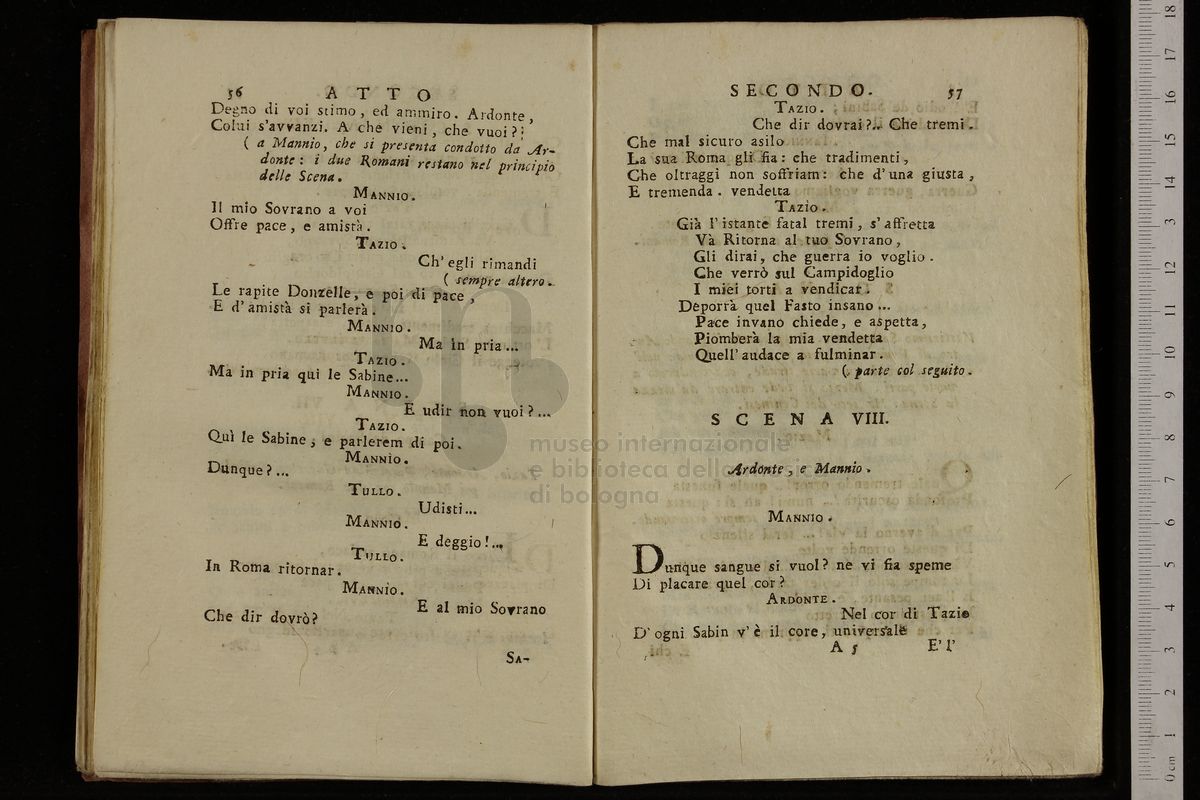 56 ATTO
Degno di voi stimo, ed ammiro. Ardonte,
Colui s'avvanzi. A che vieni, che vuoi?
( a Mannio, che si presenta condotto da Ar-
donte: i due Romani restano nel principio
delle Scena.
MANNIO.
Il mio Sovrano a voi
Offre pace, e amistà.
TAZIO.
Ch'egli rimandi
( sempre altero.
Le rapite Donzelle, e poi di pace,
E d'amistà si parlerà.
MANNIO.
Ma in pria...
TAZIO.
Ma in pria quì le Sabine...
MANNIO.
E udir non vuoi?...
TAZIO.
Quì le Sabine, e parlerem di poi.
MANNIO.
Dunque?...
TULLO.
Udisti...
MANNIO.
E deggio!...
TULLO.
In Roma ritornar.
MANNIO.
E al mio Sovrano
Che dir dovrò?
SA-
SECONDO. 57
TAZIO.
Che dir dovrai?.. Che tremi.
Che mal sicuro asilo
La sua Roma gli fia: che tradimenti,
Che oltraggi non soffriam: che d'una giusta,
E tremenda. vendetta
TAZIO.
Già l'istante fatal tremi, s'affretta
Và Ritorna al tuo Sovrano,
Gli dirai, che guerra io voglio.
Che verrò sul Campidoglio
I miei torti a vendicar.
Deporrà quel Fasto insano...
Pace invano chiede, e aspetta,
Piomberà la mia vendetta
Quell'audace a fulminar.
(. parte col seguito.
SCENA VIII.
Ardonte, e Mannio.
MANNIO.
Dunque sangue si vuol? ne vi fia speme
Di placare quel cor?
ARDONTE.
Nel cor di Tazio
D'ogni Sabin v'è il core, universale
A 5 E' l'
museo internazionale
e biblioteca della
di bologna
0 cm 1 2 3 4 5 6 7 8 9 10 11 12 13 14 15 16 17 18